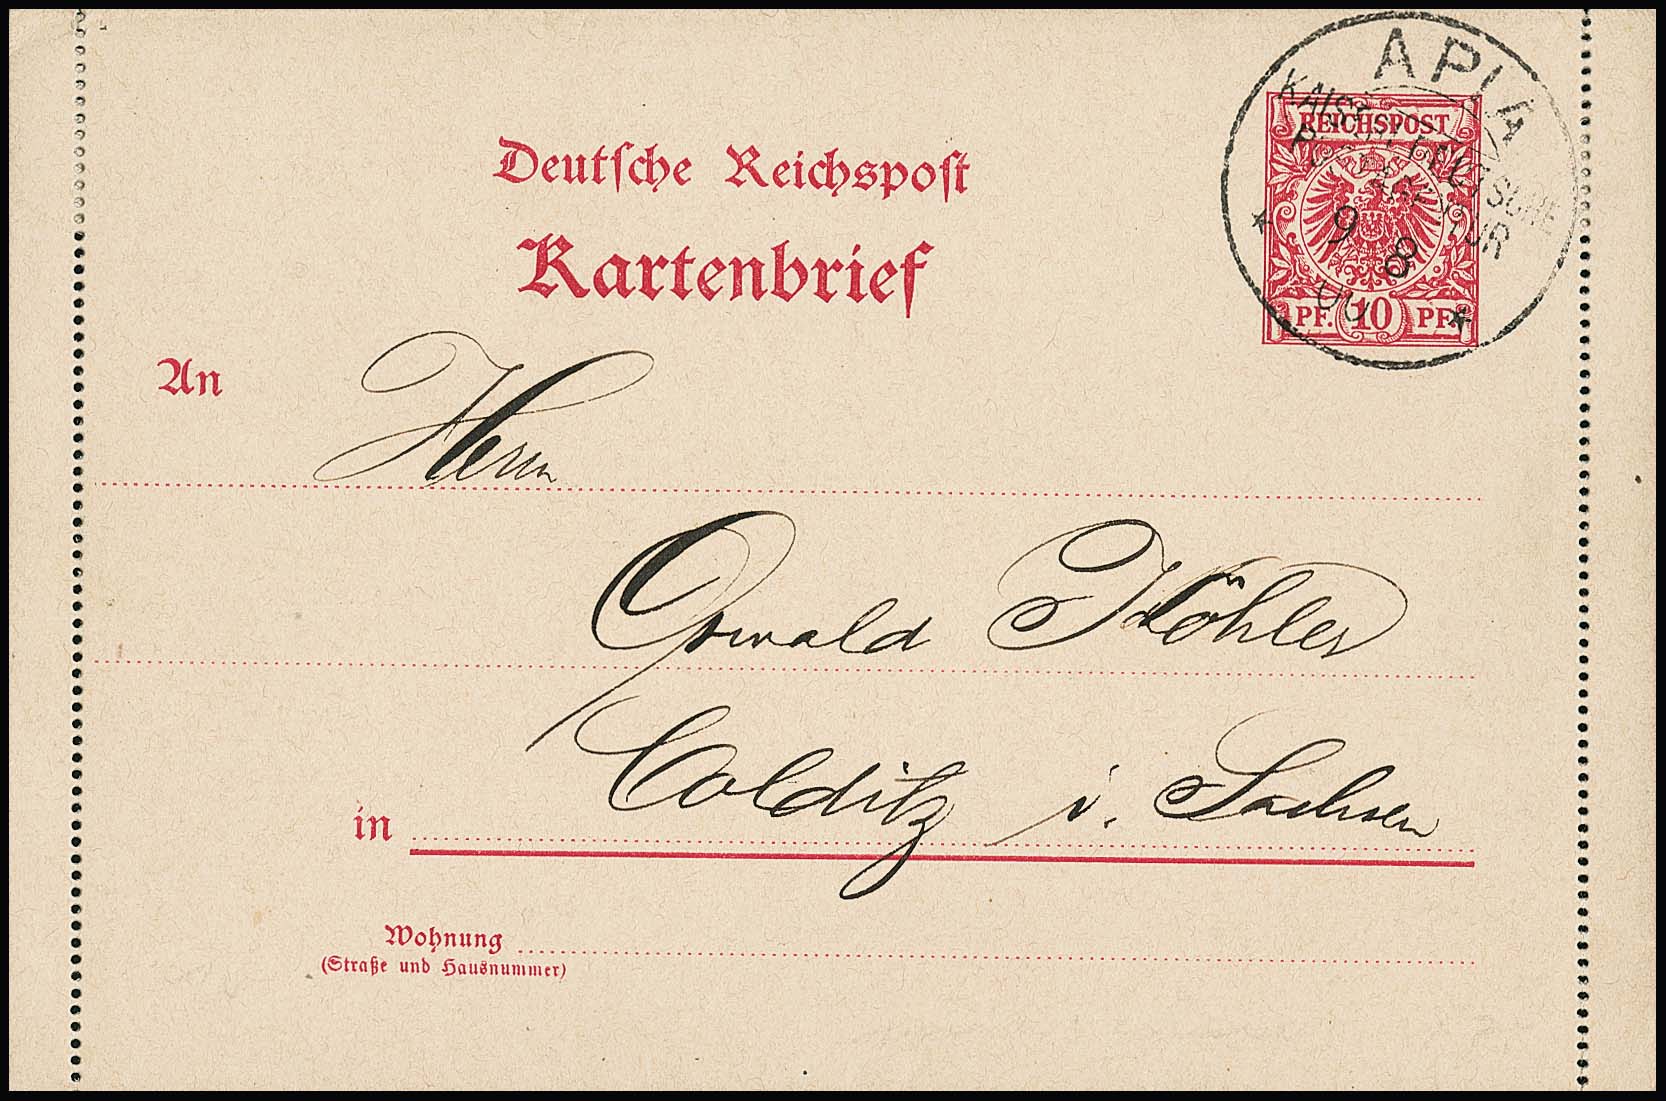 APIA
KAISERL. DEUTSCHE
POSTAGENTUR
9 8
REICHSPOST
PF. 10 PF.
Deutsche Reichspost
Kartenbrief
An Herrn
Oswald Köhler
in Colditz i. Sachsen
Wohnung
(Straße und Hausnummer)